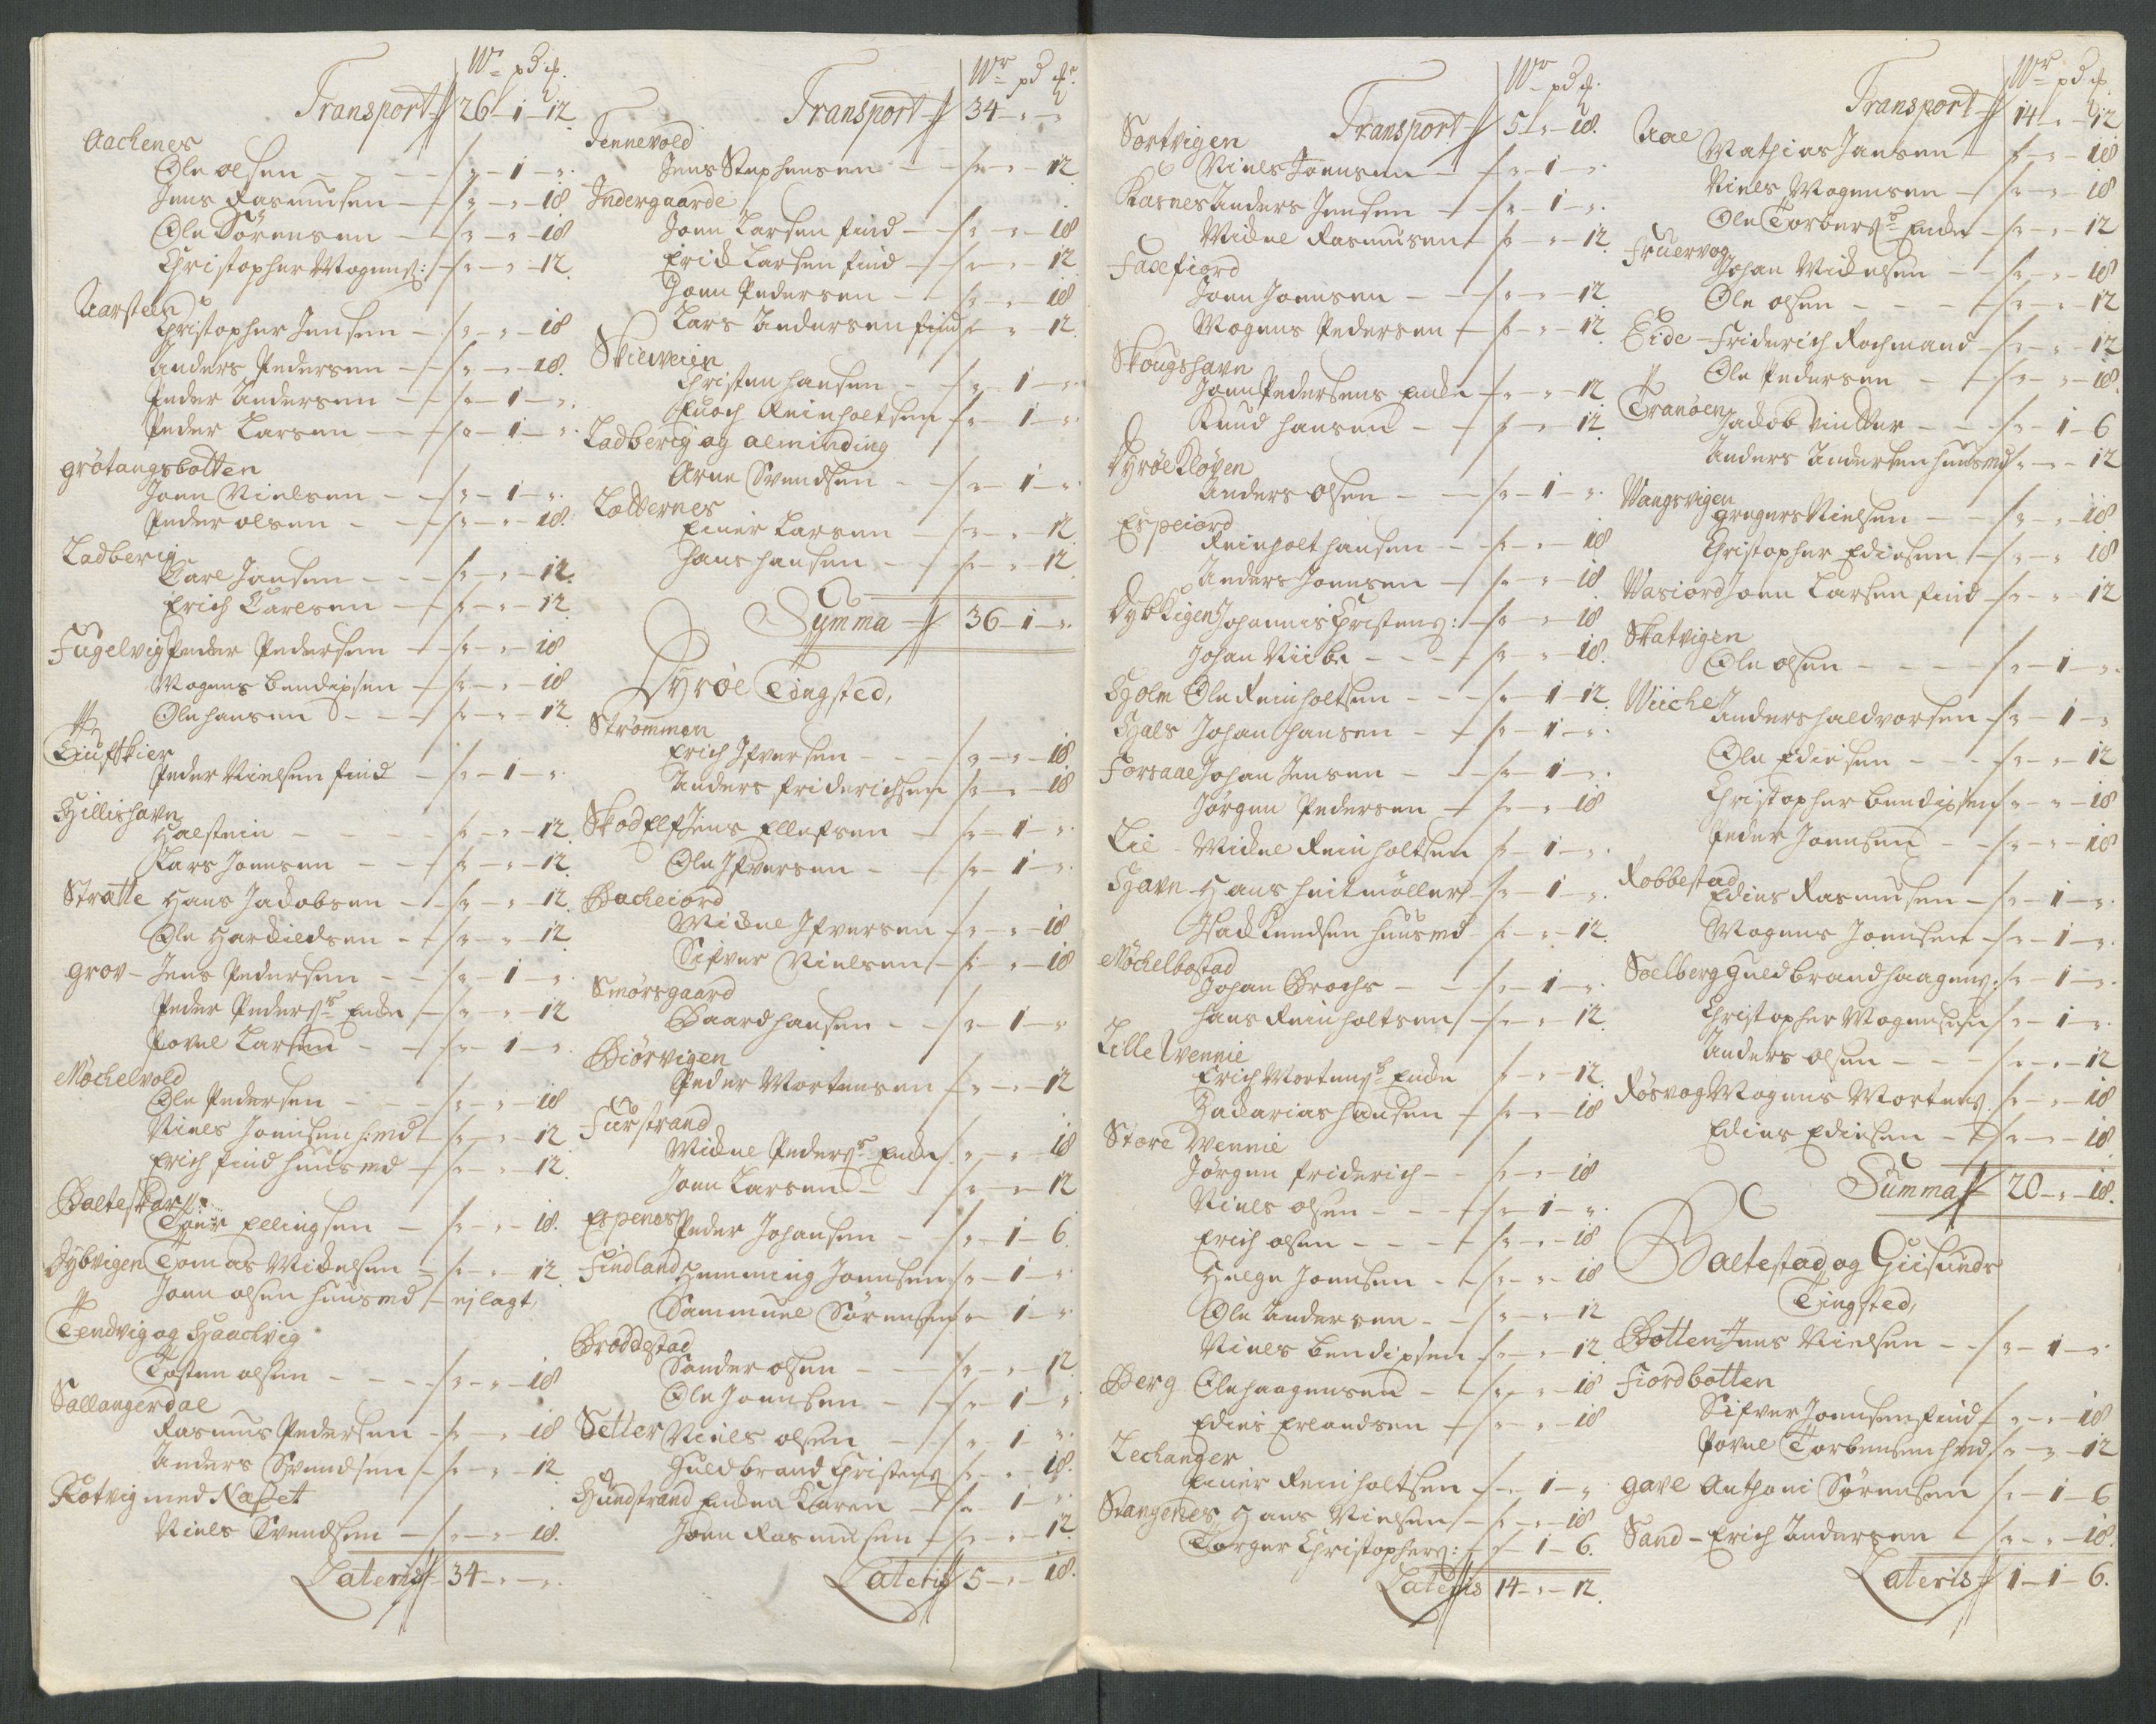 Wr pd ℔.
Transport 26 - 1 - 12
Aachenes
Ole olsen - 1 -
Jens Rasmusen - 18
Ole Sørensen - 18
Christopher Mogens: - 12
Aarsteen
Christopher Jensen - 18
Anders Pedersen - 18.
Peder Andersen - 1 -
Peder Larsen - 1 -
grøtangsbotten
Joen Nielsen - 1 -
Peder olsen - 18.
Ladberig
Carl Jansen - 12.
Erich Carlsen - 12
Fugelvig Peder Pedersen - 18
Mogens bendixsen - 18
Ole hansen - 12
Peder Nielsen find - 1 -
Hillishavn
Halstein - 12
Lars Joensen - 12
Stratte Hans Jacobsen - 12
Ole Harkildsen - 12
grov - Jens Pedersen - 1 -
Peder Peders Encke - 12
Povel Larsen - 1 -
Møchelvold
Ole Pedersen - 18
Niels Joensen h: md - 12
Erich find huusmd - 12
Balteskar
Ellingsen - 18.
Dybvigen Tomas Mickelsen - 12
Joen olsen huusmd - ej lagt.
Tendvig og Haachvig
Tosten olsen - 18
Sallangerdal
Rasmus Pedersen - 18
Anders Svendsen - 12
Kotvig med Næsset
Niels Svendsen - 18.
Lateris 34 - -
Wr pd ℔.
Transport 34 - -
Tennevold
Jens Stephensen - 12
Indergaarde
Joen Larsen find - 18
Erick Larsen find - 12
Joen Pedersen - 18
Lars Andersen find - 12
Skielveien
Christen hansen - 1 -
Enoch Reinholtsen - 1 -
Ladberig og alminding
Arne Svendsen - 1 -
Latternes
Einer Larsen - 12
Hans hansen - 12
Summa 36 - 1 -
Dyrøe Tingsted,
Strømmen
Erich Ifversen - 18
Anders friderichsen - 18
Skod Elf Jens Ellefsen - 1 -
Ole Ifversen - 1 -
Bacheiord
Mickel Ifversen - 18
Sifver Nielsen - 18
Smørsgaard
Baard hansen - 1 -
Biørvigen
Peder Mortensen - 12
Fuurstrand
Mickel Peders Encke - 18
Joen Larsen - 12
Espenes Peder Johansen - 1 - 6
Findland Hemming Joensen - 1 -
Sammuel Sørensen - 1 -
Brodestad
Sander olsen - 12
Ole Joensen - 1 -
Setter Niels olsen - 1 -
Guldbrand Christens - 18.
Hundstrand Encken Karen - 1 -
Joen Rasmusen - 12
Lateris 5 - - 18.
Wr pd ℔.
Transport 5 - - 18.
Sortvigen
Niels Joensen - 1 -
Kasnes Anders Jensen - 1 -
Mickel Rasmusen - 12
Faxefiord
Joen Joensen - 12
Mogens Pedersen - 12
Skougshavn
Joen Pedersens Encke - 12
Knud hansen - 12
Dyrøe Kløven
Anders olsen - 1 -
Espeiord
Reinholt hansen - 18
Anders Joensen - 18
Johannis Christens: - 18
Johan Viibe - 18.
Holm Ole Reinholtsen - 1 - 12
Hals Johan Hansen - 1 -
Forsaae Johan Jensen - 1 -
Jørgen Pedersen - 18
Lie - Mickel Reinholtsen - 1 -
Havn - Hans heitmøller - 1 -
Isack Knudsen huusmd - 12
Møchelbostad
Johan Brochs - 1 -
Hans Reinholtsen - 12
Lille Wennie
Erich Mortens Encke - 12
Zackarias hansen - 18
Store Wennie
Jørgen friderich - 18
Niels olsen - 1 -
Erich olsen - 18
Helge Joensen - 18
Ole Andersen - 12
Niels bendixsen - 12
Berg Ole haagensen - 18
Edies Erlandsen - 18
Lechanger
Einer Reinholtsen - 1 -
Stangenes Hans Nielsen - 18
Torger Christophers: - 1 - 6.
Lateris 14 - - 12.
Wr pd ℔.
Transport 14 - - 12
Aae
Mathias Jansen - 18
Niels Mogensen - 18
Ole Torbers Encke - 12
Fruervog
Johan Mickelsen - 18
Ole olsen - 12
Eide - Friderich Rochmand - 12
Ole Pedersen - 18.
Tranøen
Jackob Vinther - 1 - 6
Anders Andersen huusmd - 12
Wangsvigen
gregers Nielsen - 18
Christopher Ediesen - 18
Wasiord Joen Larsen find - 12
Skatvigen
Ole olsen - 1 -
Wiiche Anders haldvorsen - 1 -
Ole Ediesen - 12
Christopher bendixsen - 18
Peder Joensen - 18
Robbestad
Edies Rasmusen - 1 -
Mogens Joensen - 1 -
Soelberg Guldbrand haagens: - 1 -
Christopher Mogensen - 1 -
Anders olsen - 12
Røsvog Mogens Mortens: - 18
Edies Ediesen - 18
Summa 20 - - 18.
Baltestad og Giisunds
Tingsted,
Botten Jens Nielsen - 1 -
Fiordbotten
Sifver Joensen find - 18
Povel Torbensen hmd - 12
gave Anthoni Sørensen - 1 - 6
Sand - Erich Andersen - 18.
Lateris 1 - 1 - 6.